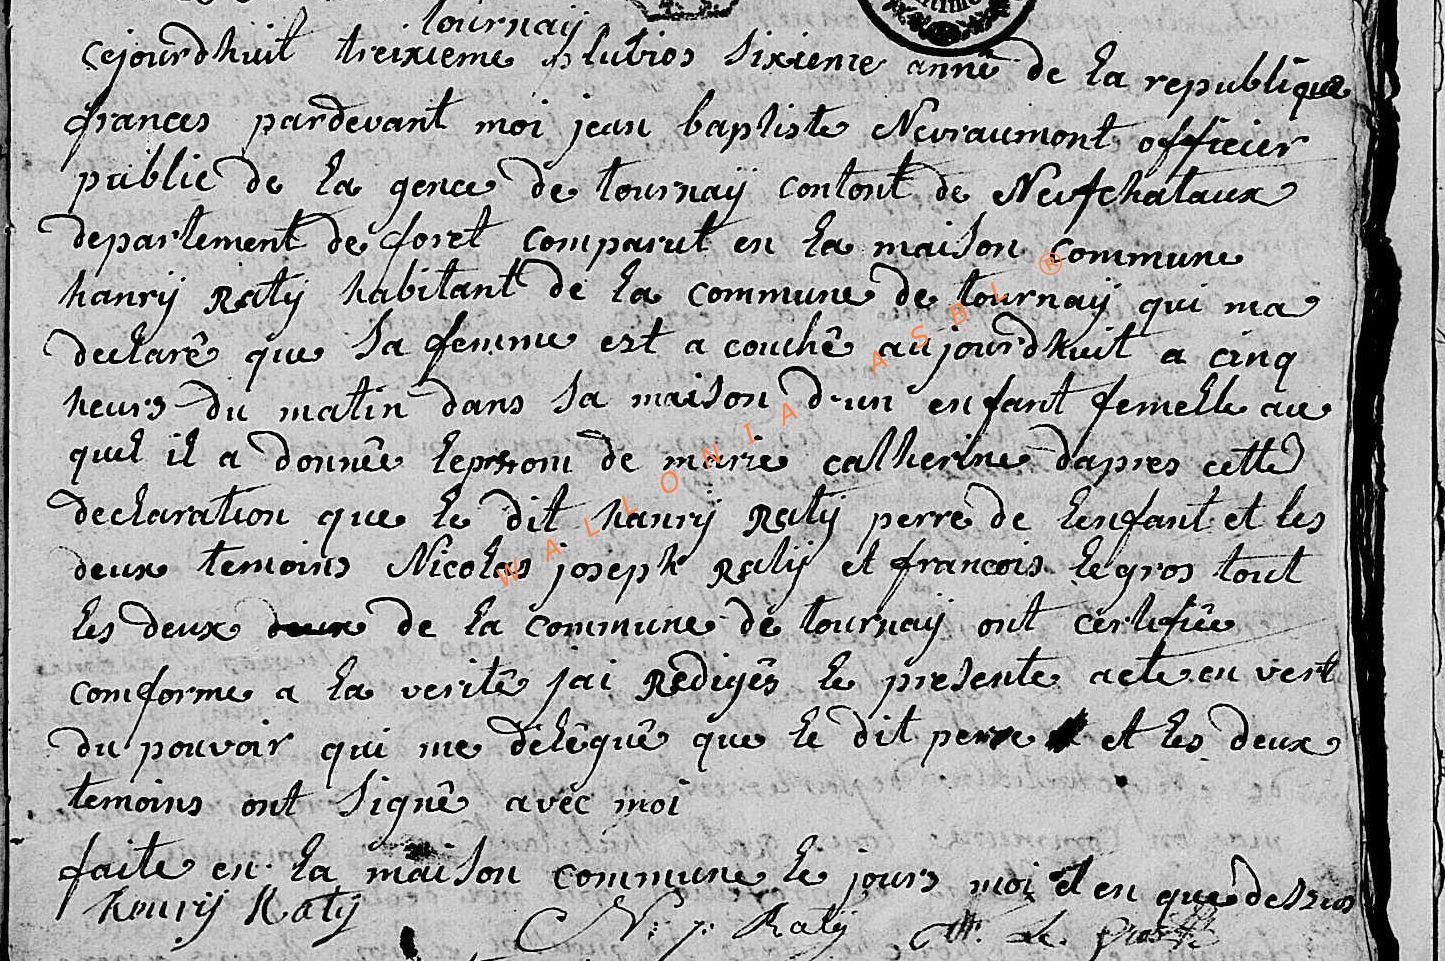 tournaÿ
cejourdhuit treixieme plutios sixieme anné de la republique
frances pardevant moi jean baptiste Nevraumont officier
public de la gence de tournaÿ contont de Neufchataux
departement de foret comparut en la maison commune
hanrÿ Ratÿ habitant de la commune de tournaÿ qui ma
declaré que sa femme est a couché aujourdhuit a cinq
heurs du matin dans sa maison d'un enfant femelle au
quel il a donnée leprnom de marie catherine dapres cette
declaration que le dit hanrÿ Ratÿ perre de lenfant et les
deux temoins Nicolas joseph Ratÿ et francois legros tout
les deux de la commune de tournaÿ ont certifiée
comforme a la verité jai Redigés le presente acte en vert
du pouvoir qui me délégué que le dit perre et les deux
temoins ont signé avec moi
faite en la maison commune le jours moi et en que dessus
henrÿ Ratÿ N: j: Ratÿ f. Le gros
WALLONIA ASBL ®